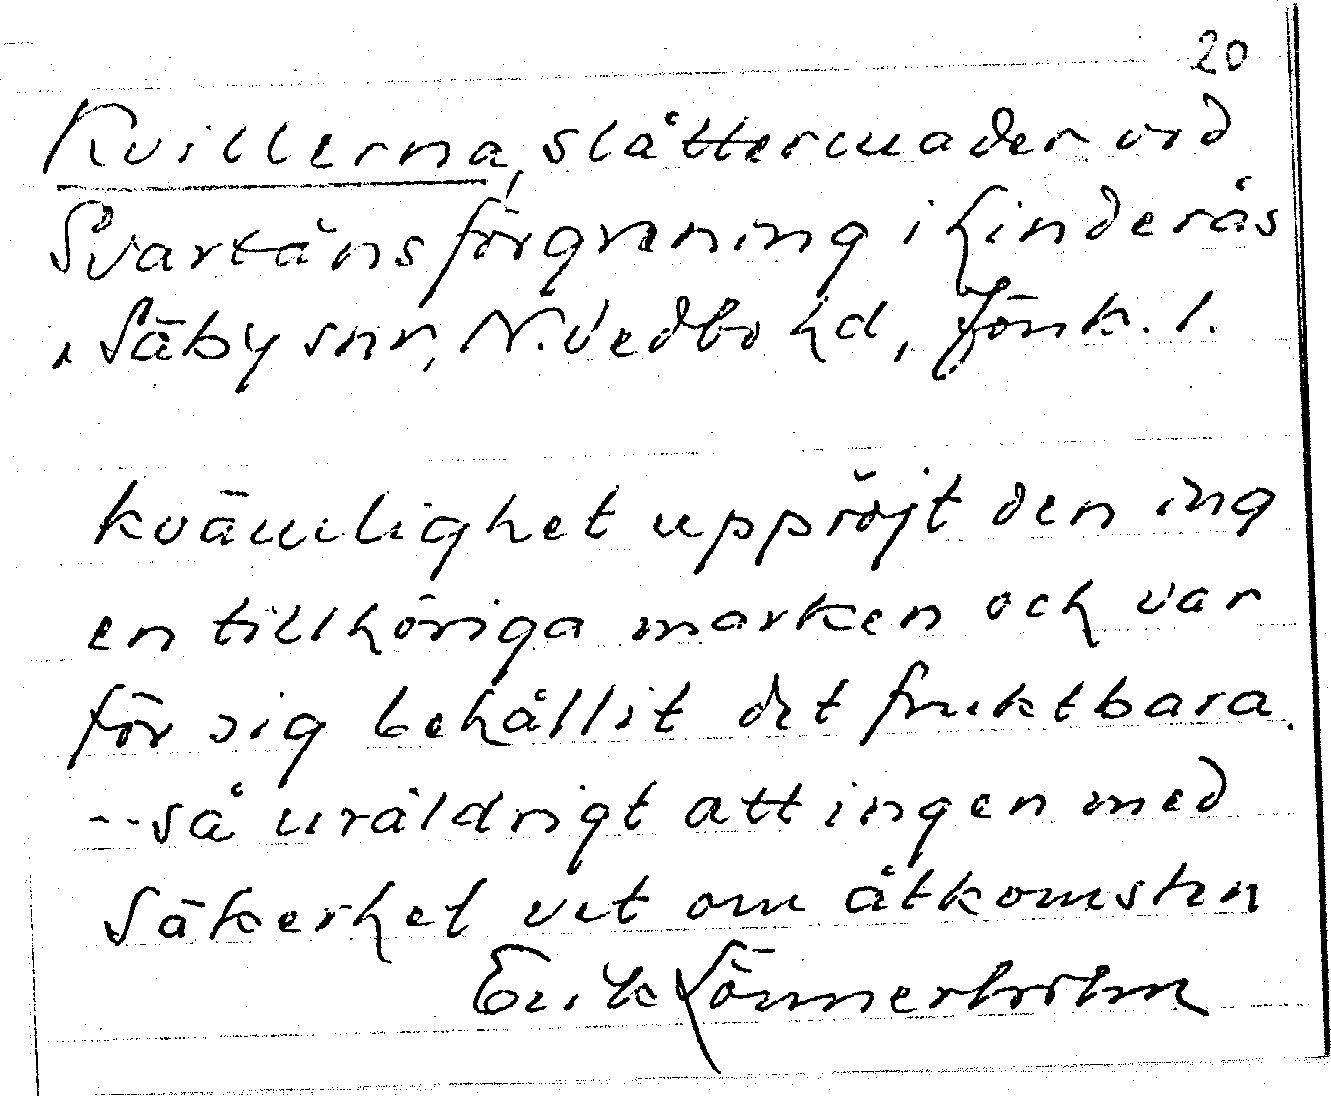 20
Kvillerna, slåttermader vid
Svartåns förgrening i Linderås
, Säby snr, N. Vedbo hd, Jönk. l.
kvämlighet uppröjt den ing
en tillhöriga marken och var
för sig behållit det fruktbara.
--så uråldrigt att ingen med
säkerhet vet om åtkomsten
Erik Lönnerholm